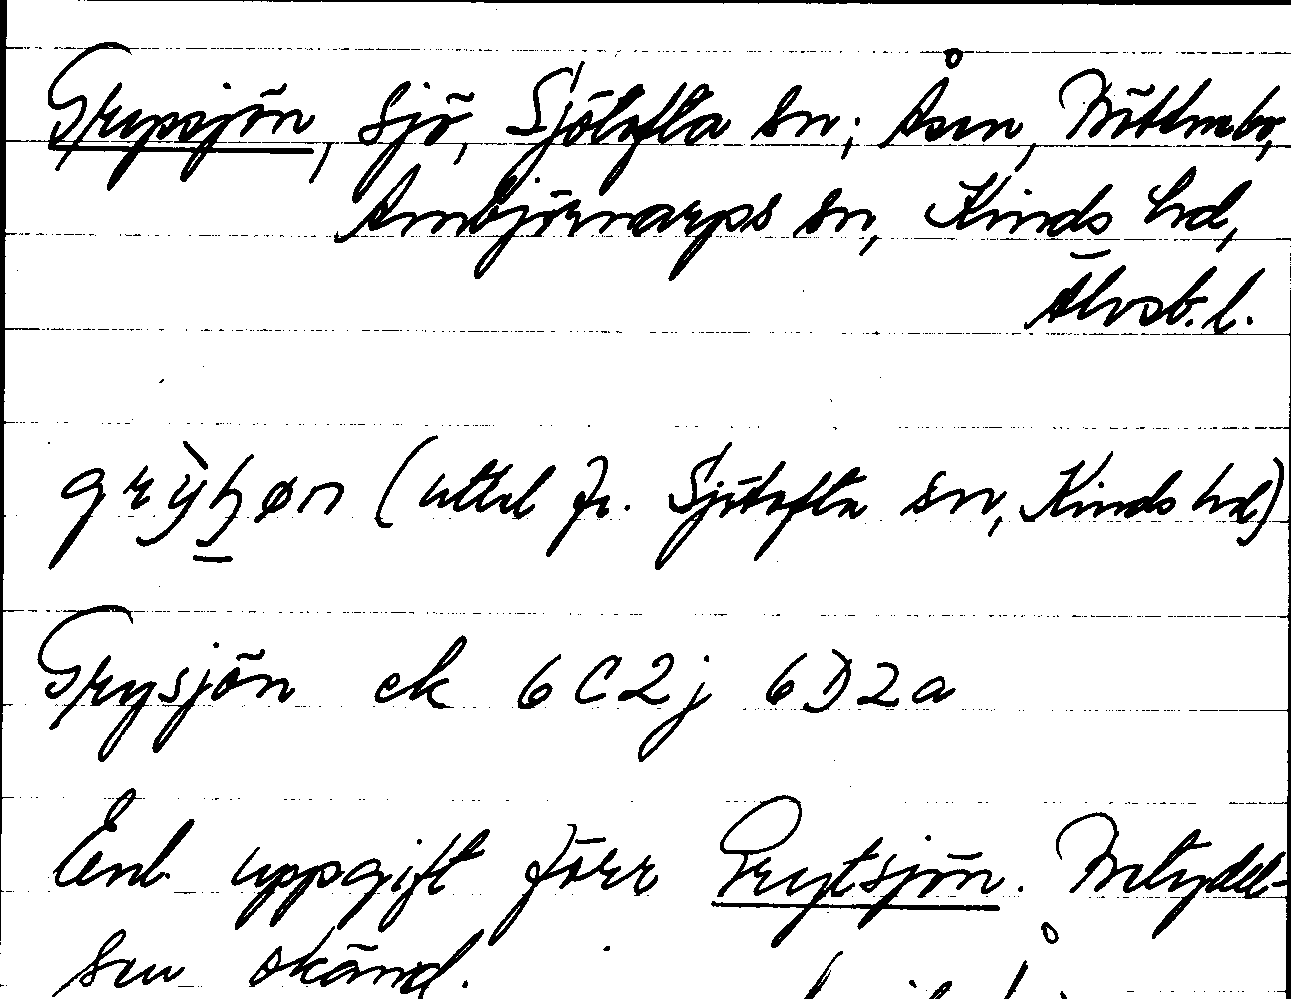 Grypsjön, sjö, Sjötofta sn; Åsen, Bötlmebo,
Ambjörnarps sn, Kinds hd,
Älvsb. l.
grỳʂøn (uttal fr. Sjötofta sn, Kinds hd)
Grysjön ek 6C2j 6D2a
Enl. uppgift förr Grytsjön. Betydel-
sen okänd.